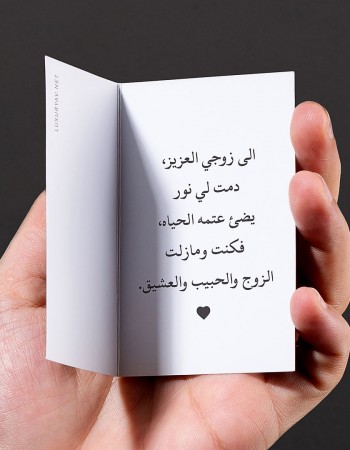 الى زوجي العزيز،
دمت لي نور
يضئ عتمه الحياه،
فكنت ومازلت
الزوج والحبيب والعشيق.